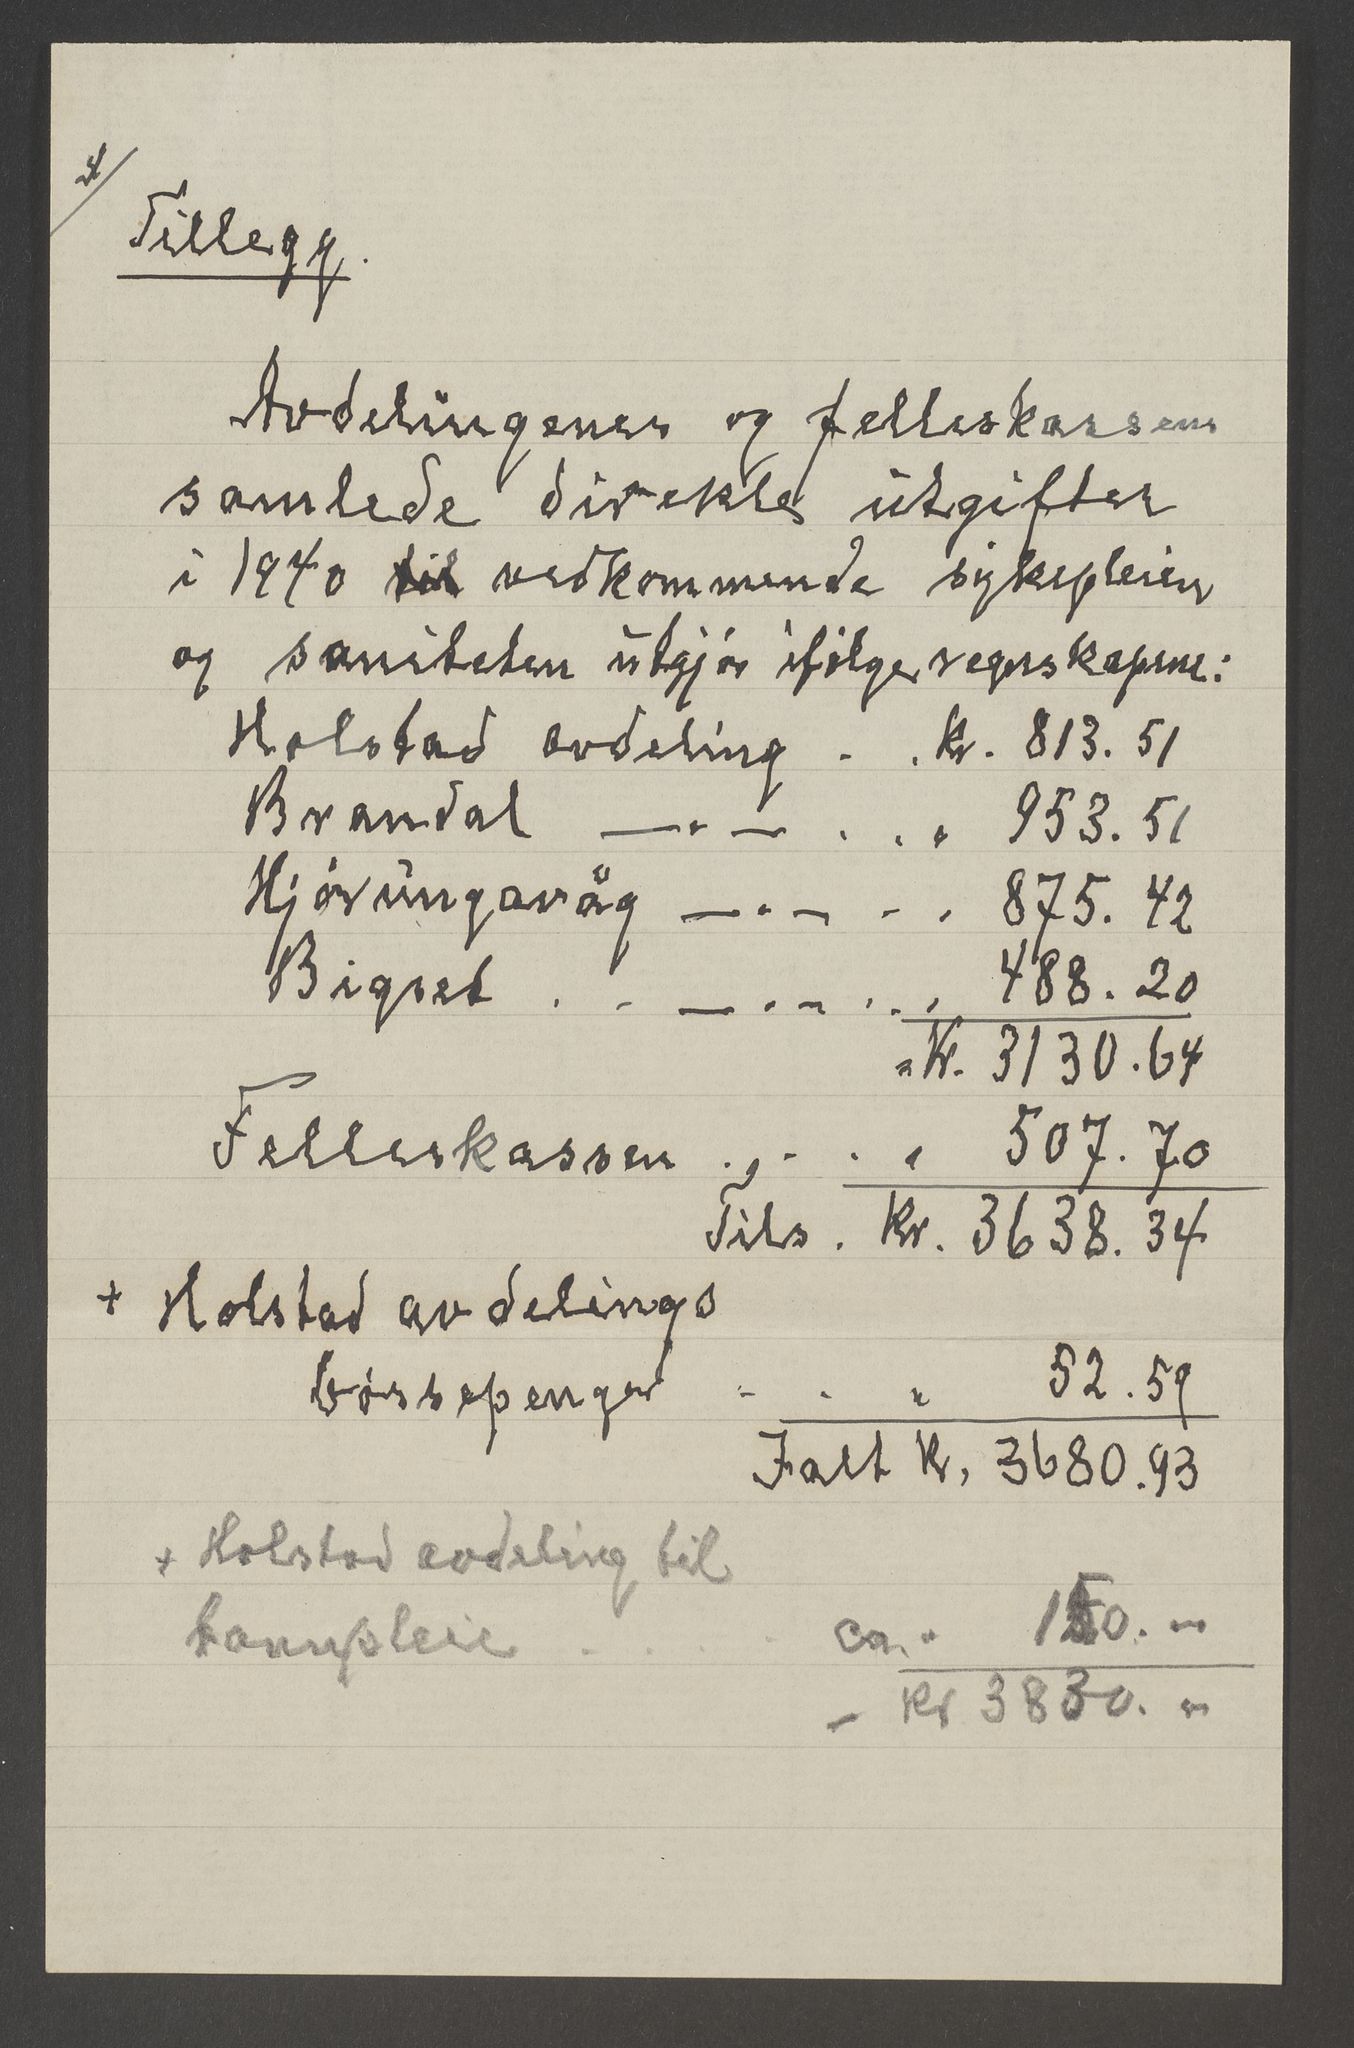 4/
Tillegg.
Avdelingenes og felleskassens
samlede direkte utgifter
i 1940 vedkommende sykepleien
og saniteten utgjör ifölge regnskapene:
Holstad avdeling . . Kr. 813.51
Brandal —"— . . „ 953.51
Hjörungavåg —"— . . 875.42
Bigset . . —"— . . „ 488.20
= Kr. 3130.64
Felleskassen . . . . „ 507.70
Tils. Kr. 3638.34
+ Holstad avdelings
bössepenger . . „ 52.59
Ialt Kr. 3680.93
+ Holstad avdeling til
tannpleie . . . . ca. „ 150.–
– Kr 3830.–